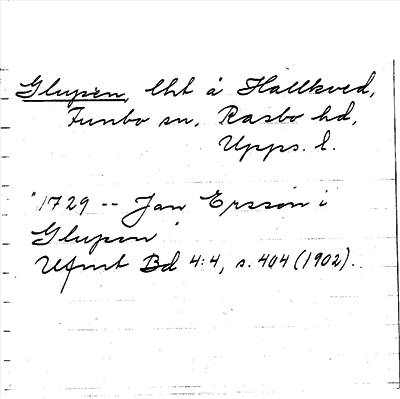 Glupen, lht å Hallkved,
Funbo sn, Rasbo hd,
Upps. l.
"1729 -- Jan Ersson i
Glupen"
Ufmt Bd 4:4, s. 404 (1902).